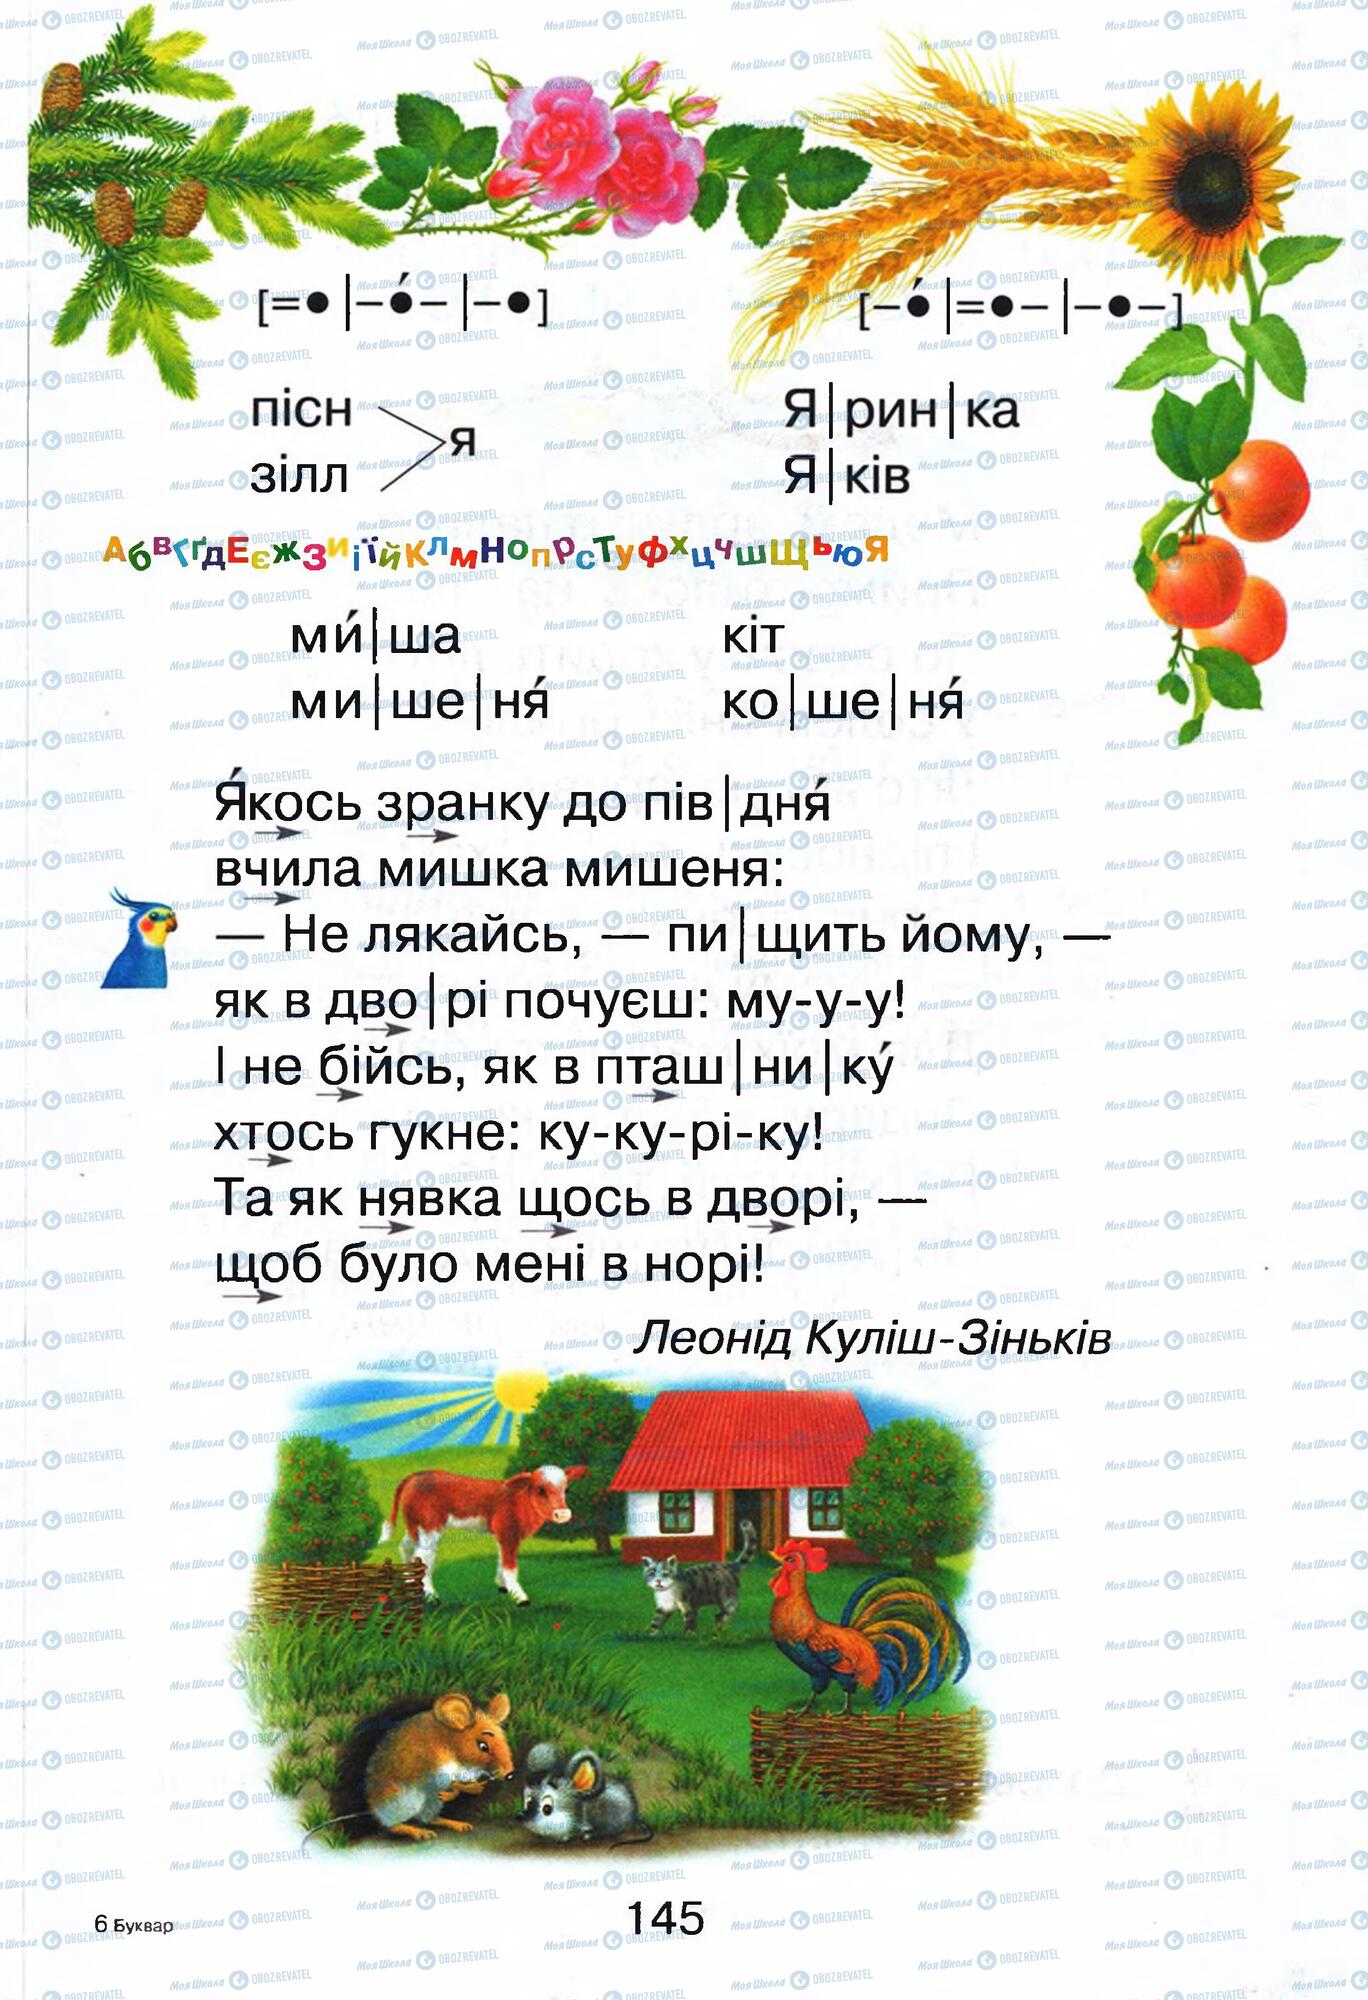 [=●|–●́–|–●] [–●́|=●–|–●–]
пісн
зілл
я
Я|рин|ка
Я|ків
АбвГґдЕєжЗиіїйКлмНопрсТуфхцчшЩьюЯ
ми́|ша кіт
ми|ше|ня́ ко|ше|ня́
Я́кось зранку до пів|дня́
вчила мишка мишеня:
— Не лякайсь, — пи|щить йому, —
як в дво|рі почуєш: му-у-у!
І не бійсь, як в пташ|ни|ку́
хтось гукне: ку-ку-рі-ку!
Та як нявка щось в дворі, —
щоб було мені в норі!
Леонід Куліш-Зіньків
6 Буквар
145
МояШкола OBOZREVATEL